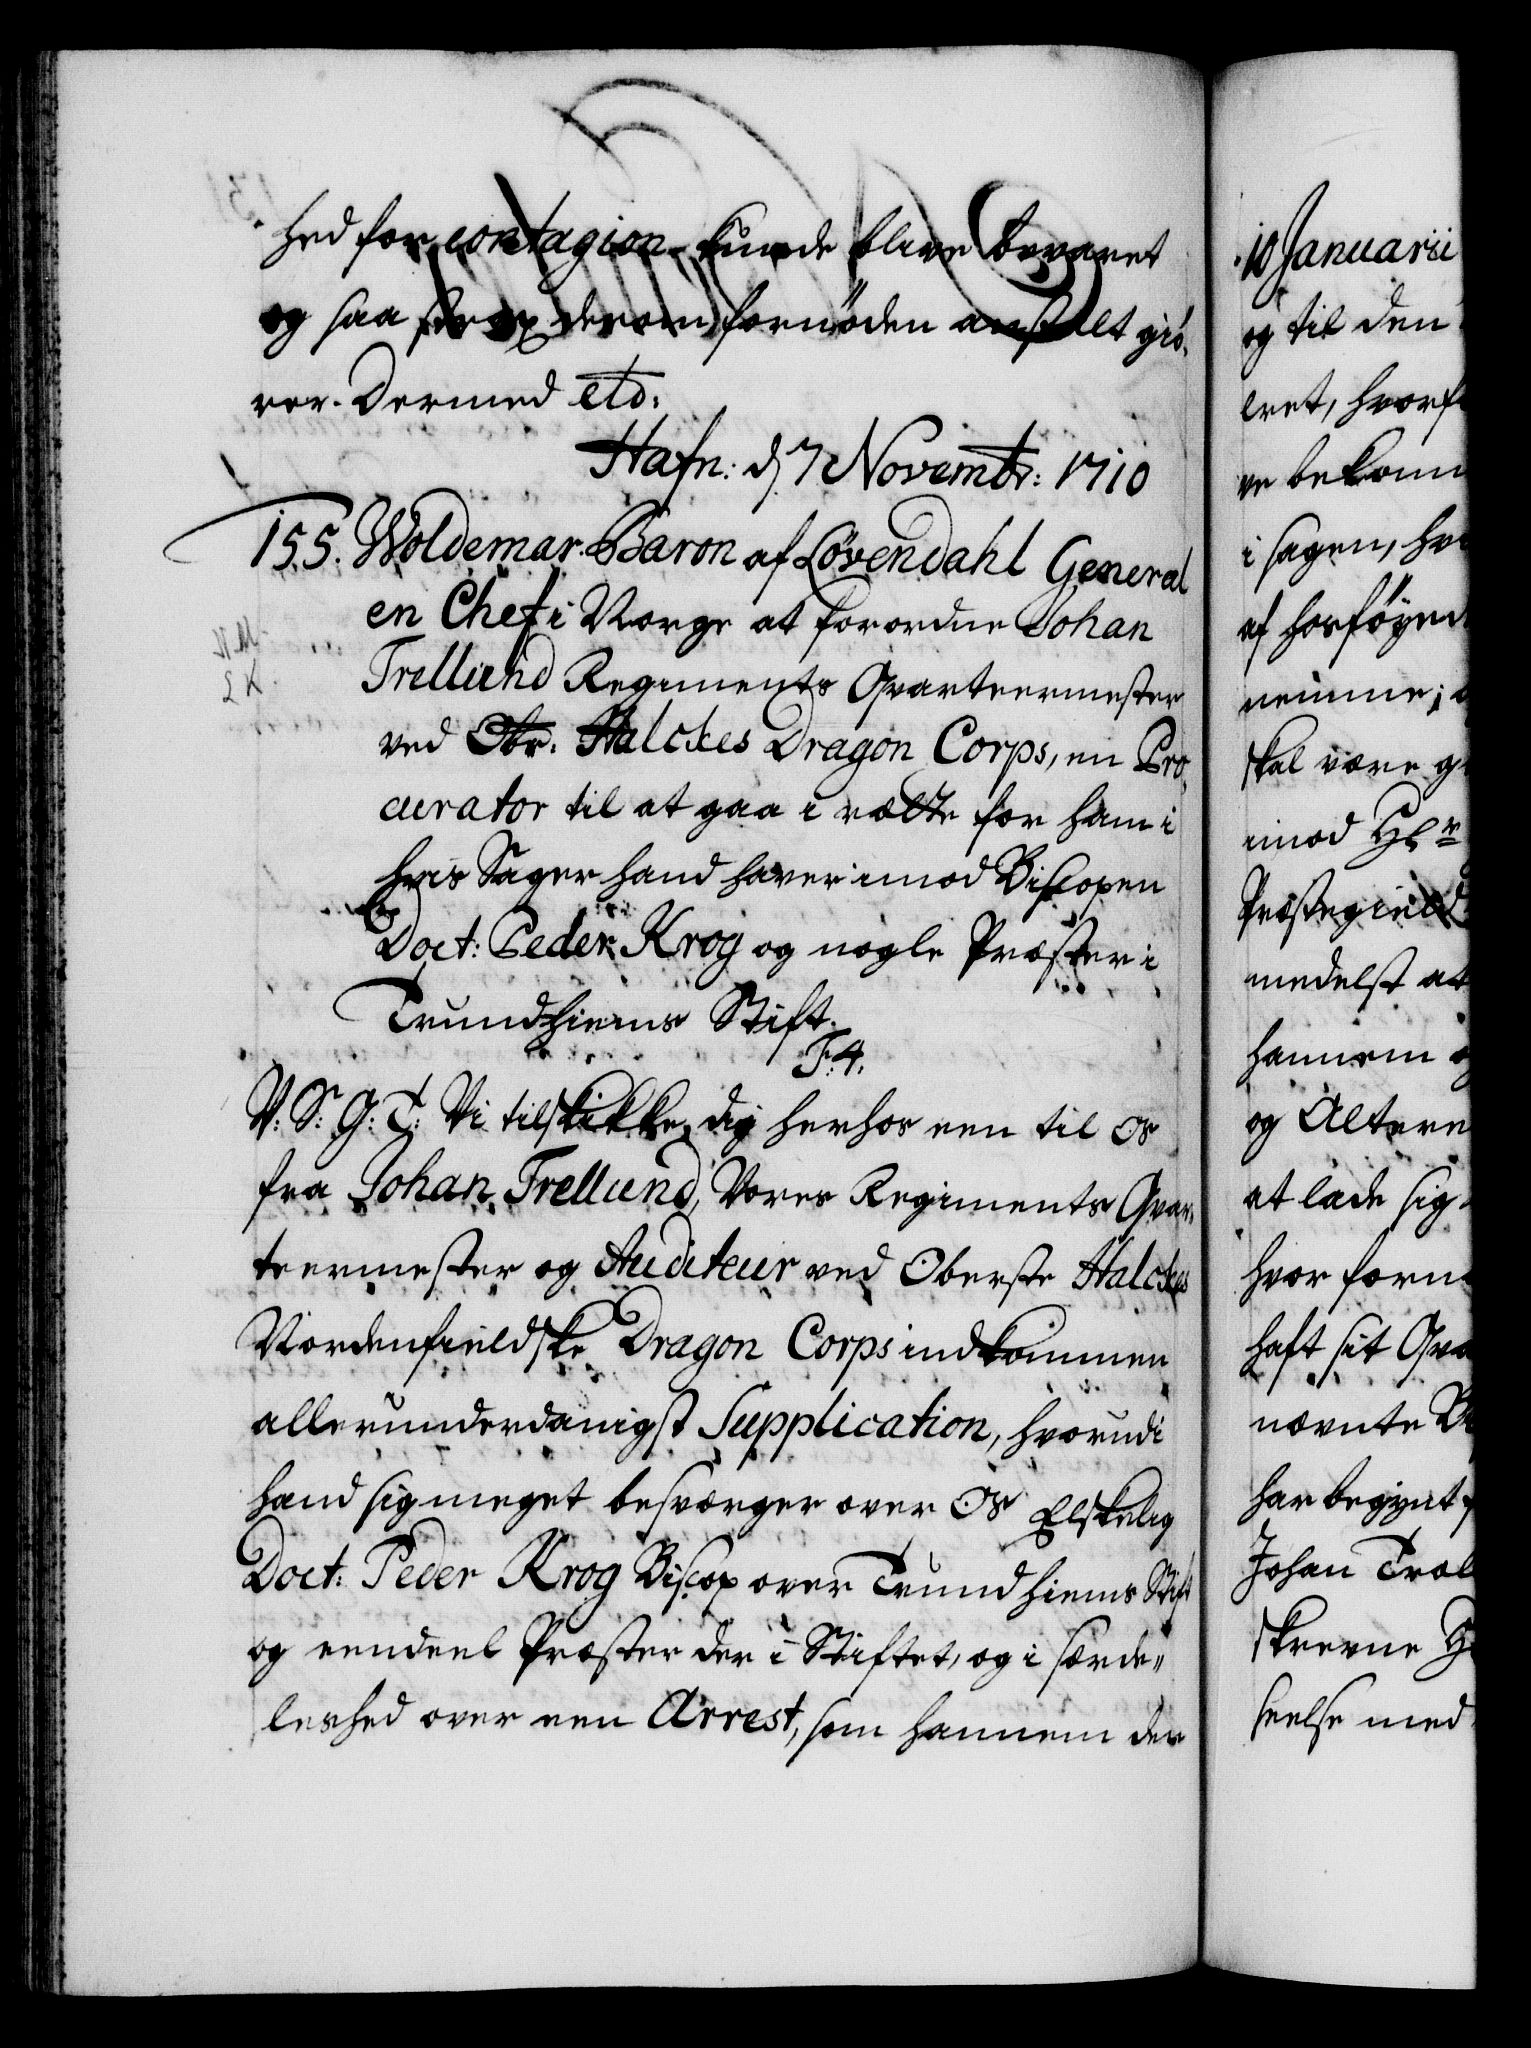 hed for contagion kunde blive bevaret
og saa strax derom fornøden anstalt giø-
rer. Dermed etc:
Hafn: d 7 Novembr: 1710
155. Woldemar Baron af Løvendahl General
en Chef i Norge at forordne Johan
Trellund Regiments Qvarteermester
ved Obr. Halckes Dragon Corps, en Pro-
curator til at gaa i rætte for ham i
hvis Sager hand haver imod Biscopen
Doct: Peder Krog og nogle Præster i
Trundhiems Stift.
F: 4.
V: S: G: T: Vi tilskikke dig herhos een til Os
fra Johan Trellund, Vores Regiments Qvar-
teermester og Auditeur ved Oberste Halckes
Nordenfieldske Dragon Corps indkommen
allerunderdanigst Supplication, hvorudi
hand sig meget besværger over Os Elskelig
Doct: Peder Krog Biscop over Trundhiems Stift
og eendeel Præster der i Stiftet, og i særde-
leshed over een Arrest, som hannem der
10 Januarii
og til den
eret, hvorf
ve bekom
i sagen, hv
af hosføyed
nemme; o
skal være g
imod Hr
Præstegield
medelst at
hannem o
og Altere
at lade sig
hvor forn
haft sit Qva
nævnte B
har begynt
Johan Trel
skrevne H
seelse med